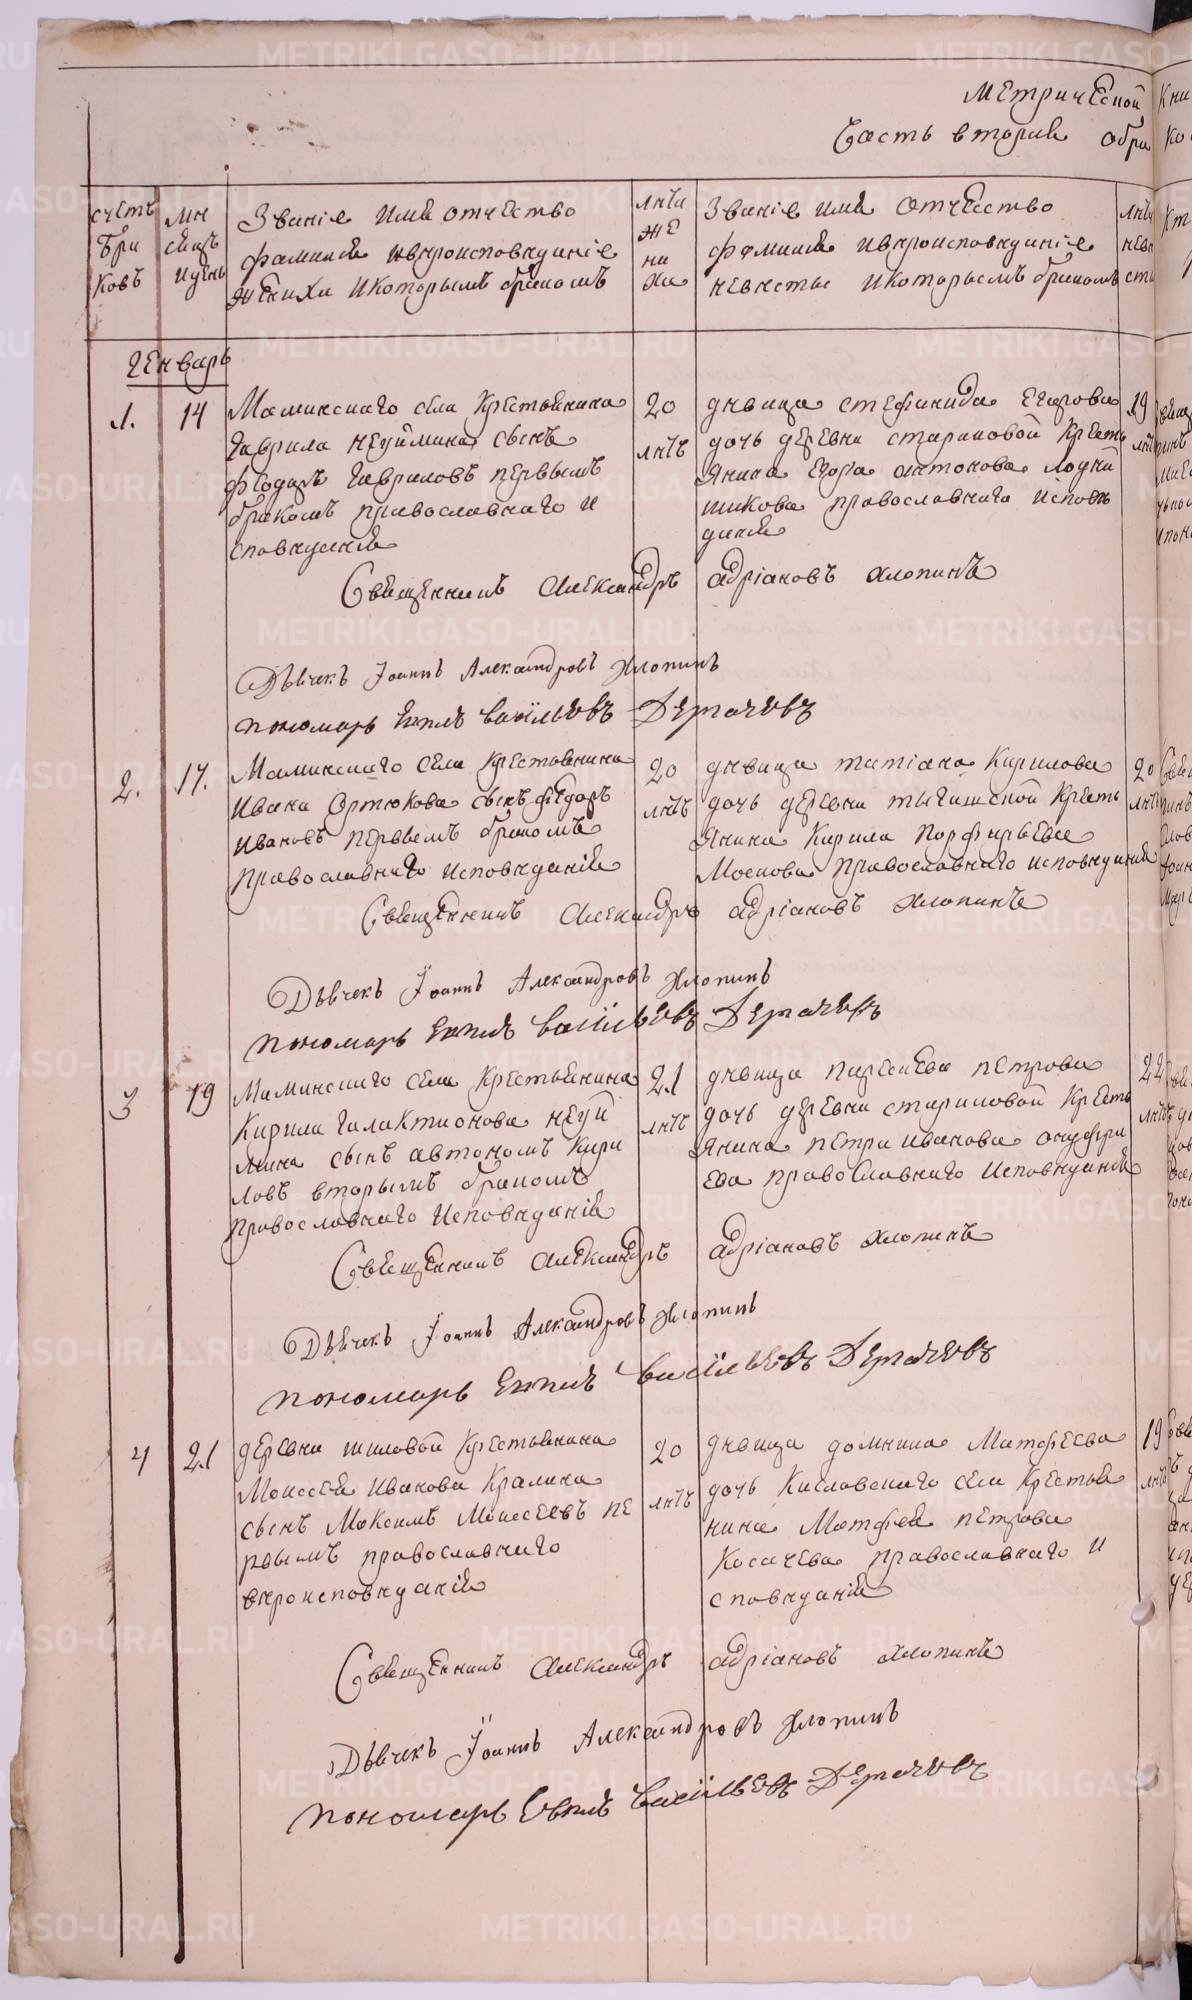 Метрической
Часть вторая о бра
счетъ бра ковъ
мѣ сяцъ и день
Званіе имя отчество
фамилия ивѣроисповѣданіе
жениха и которымъ бракомъ
лѣта же ни ха
Званіе имя отчество
фамилия ивѣроисповѣданіе
невѣсты и которымъ бракомъ
лѣта невѣ сты
Генварь
1.
14
Маминскаго села крестьянина
Гаврила неуймина сынъ
Феодоръ Гавриловъ первымъ
бракомъ православнаго и
споведания
20
лѣтъ
дѣвица стефанида Егорова
дочь деревни стариковой кресть
янина Егора антонова
шикова православнаго исповѣ
дания
19
лѣт
Священникъ Александръ адріановъ хлопинъ
Дьячекъ Іоаннъ Александровъ Хлопинъ
пономарь васильевъ Дергачевъ
2.
17.
Маминскаго села крестьянина
Ивана Ортюкова сынъ федоръ
Ивановъ первымъ бракомъ
православнаго исповѣданія
20
лѣтъ
дѣвица татіана Кирилова
дочь деревни тыгишской кресть
янина Кирила Порфирьева
Моснова православнаго исповѣдания
20
лѣтъ
Священникъ Александръ адріановъ хлопинъ
Дьячекъ Іоаннъ Александровъ Хлопинъ
пономарь васильевъ Дергачевъ
3
19
Маминскаго села крестьянина
Кирила галактионова неуй
мина сынъ автономъ Кири
ловъ вторымъ бракомъ
православнаго исповѣданія
21
лѣтъ
дѣвица параскева петрова
дочь деревни стариковой кресть
янина петра иванова онуфри
ева православнаго исповѣдания
22
лѣтъ
Священникъ Александръ адріановъ хлопинъ
Дьячекъ Іоаннъ Александровъ Хлопинъ
пономарь васильевъ Дергачевъ
4
21
деревни шиловой крестьянина
Моисея Иванова Кралина
сынъ Максимъ Моисеевъ пе
рвымъ православнаго
вѣроисповѣданія
20
лѣтъ
дѣвица домника Матфеева
дочь Кисловскаго села крестья
нина Матфея петрова
Косачева православнаго и
споведания
19
лѣтъ
Священникъ Александръ адріановъ хлопинъ
Дьячекъ Іоаннъ Александровъ Хлопинъ
пономарь васильевъ Дергачевъ
METRIKI.GASO-URAL.RU